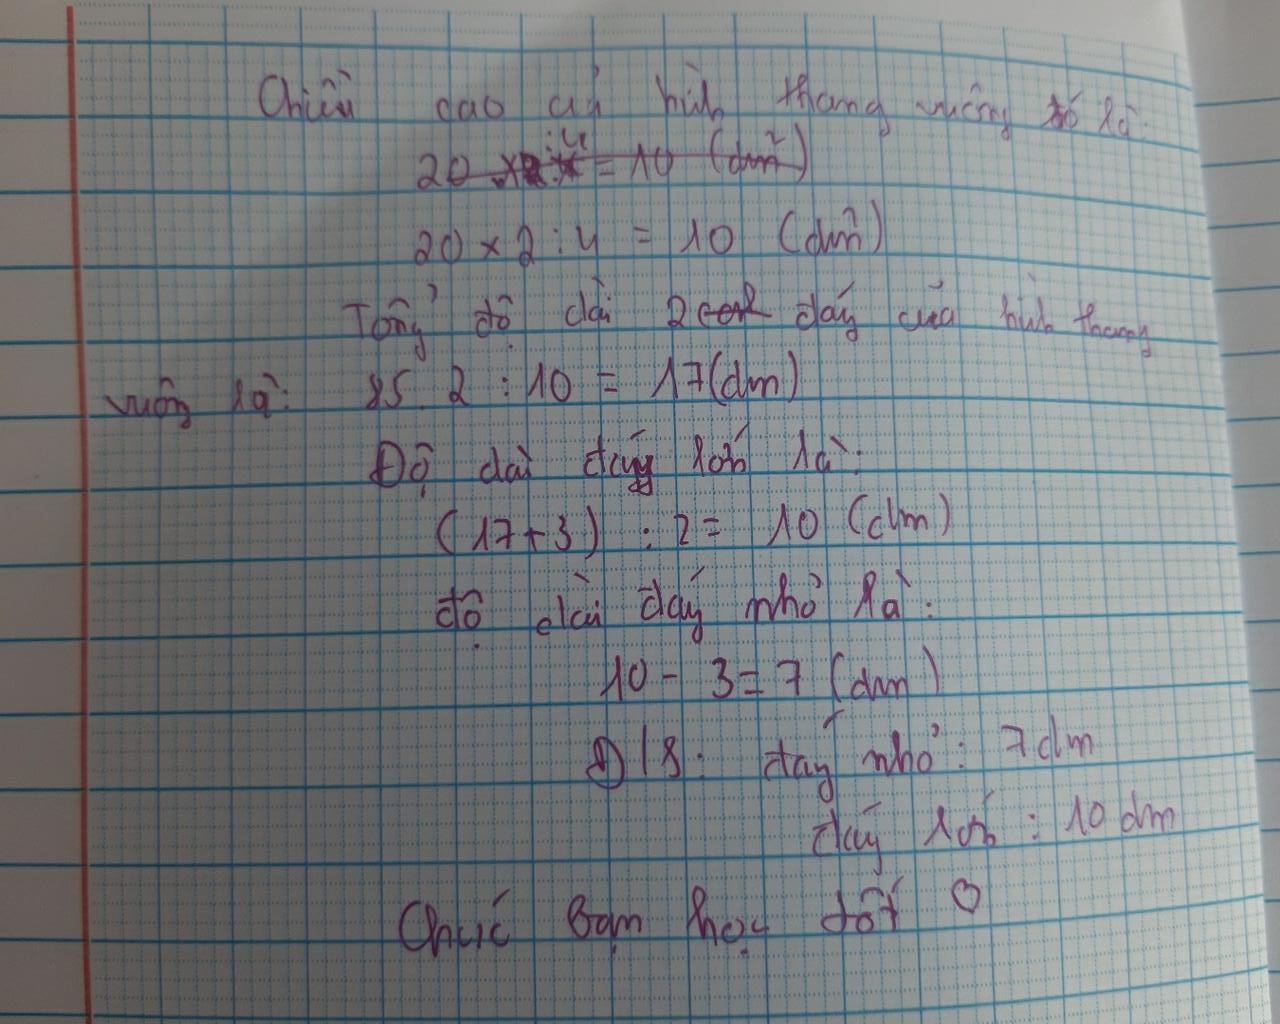 Chiều cao củ hình thang vuông đó là:
20 : 4 = 10 (dm²)
20 × 2 : 4 = 10 (dm)
Tổng độ dài 2 đáy của hình thang
vuông là: 85 . 2 : 10 = 17 (dm)
Độ dài đáy lớn là:
(17 + 3) : 2 = 10 (dm)
độ dài đáy nhỏ là:
10 - 3 = 7 (dm)
Đ/S: đáy nhỏ : 7 dm
đáy lớn : 10 dm
Chúc bạn học tốt